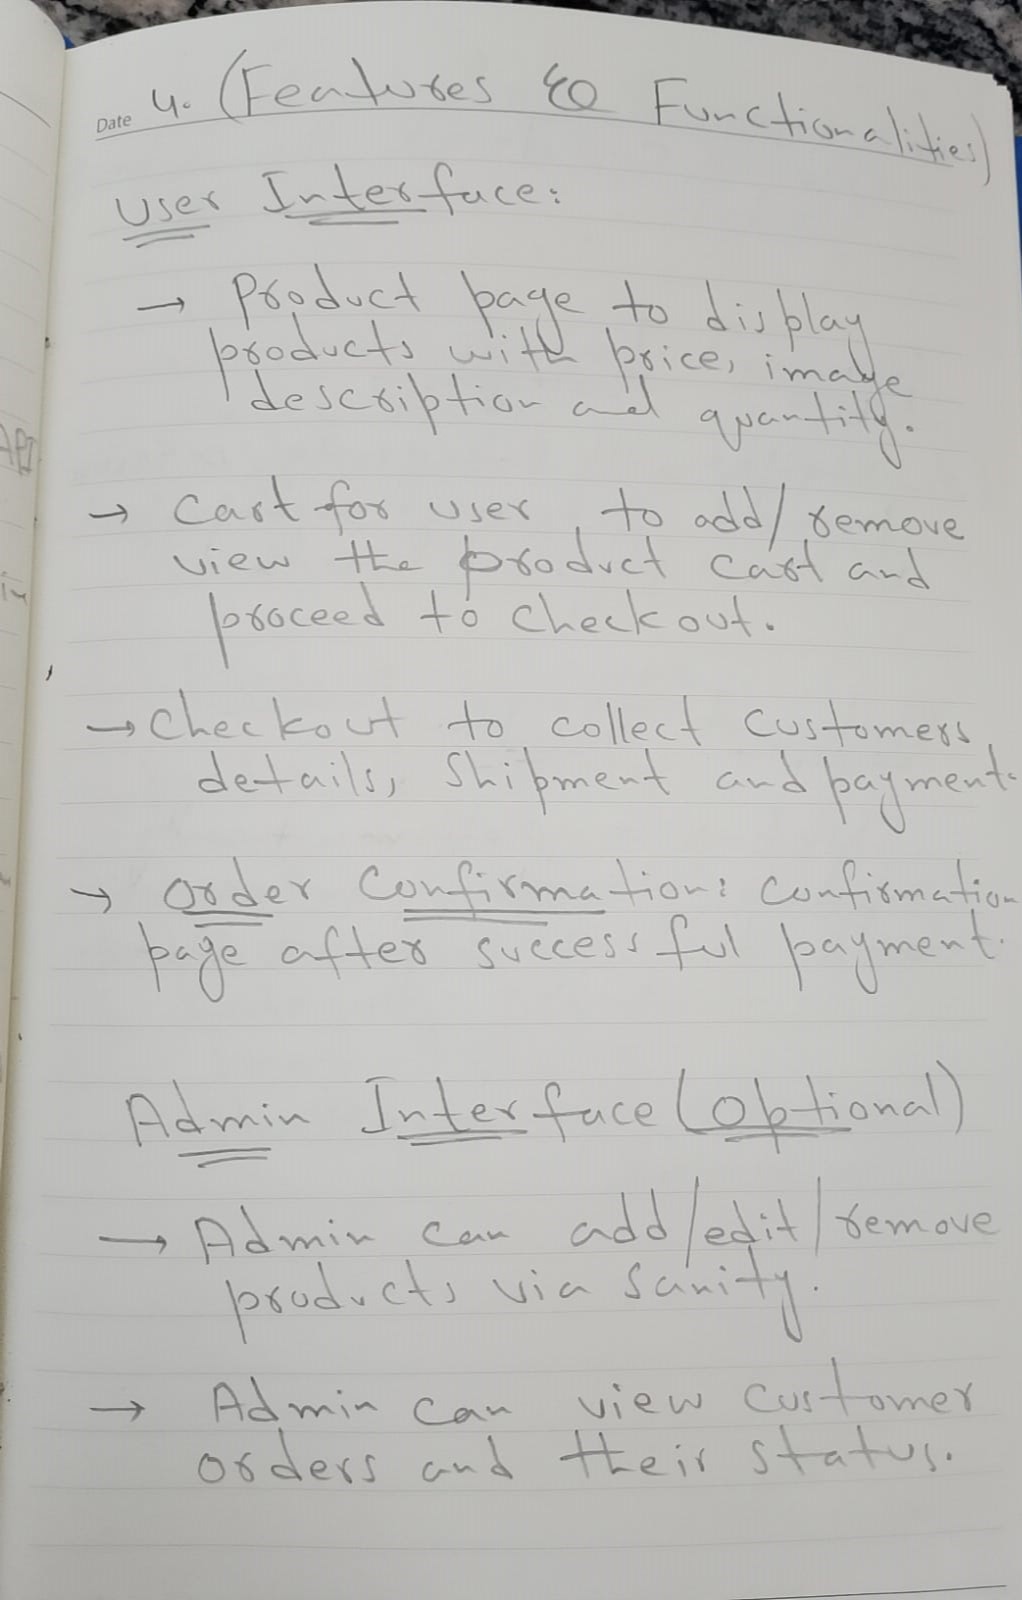 Date 4. (Features & Functionalities)
User Interface:
→ Product page to display
products with price, image
description and quantity.
→ Cart for user, to add/remove
view the product cart and
proceed to checkout.
→ Checkout to collect customers
details, Shipment and payment.
→ Order Confirmation: confirmation
page after successful payment.
Admin Interface (Optional)
→ Admin can add/edit/remove
products via sanity.
→ Admin can view customer
orders and their status.
API